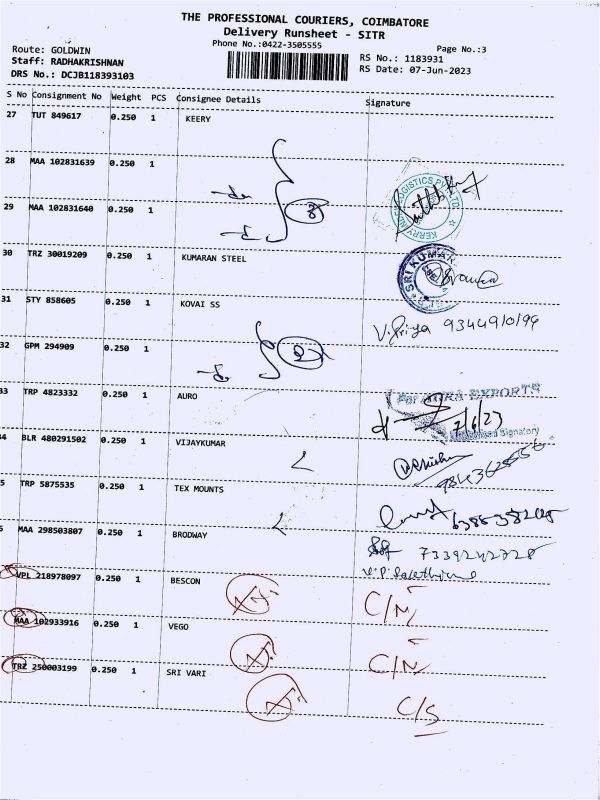 THE PROFESSIONAL COURIERS, COIMBATORE
Delivery Runsheet - SITR
Phone No.:0422-3505555
Page No.:3
Route: GOLDWIN
RS No.: 1183931
Staff: RADHAKRISHNAN
RS Date: 07-Jun-2023
DRS No.: DCJB118393103
S No Consignment No Weight PCS Consignee Details Signature
27 TUT 849617 0.250 1 KEERY
28 MAA 102831639 0.250 1
29 MAA 102831640 0.250 1 3
30 TRZ 30019209 0.250 1 KUMARAN STEEL
31 STY 858605 0.250 1 KOVAI SS V. Priya
32 GPM 294909 0.250 1 2
33 TRP 4823332 0.250 1 AURO 7/6/23
34 BLR 480291502 0.250 1 VIJAYKUMAR
5 TRP 5875535 0.250 1 TEX MOUNTS
MAA 298503807 0.250 1 BRODWAY
VPL 218978097 0.250 1 BESCON C/N
MAA 102933916 0.250 1 VEGO C/N
TRZ 250003199 0.250 1 SRI VARI C/S